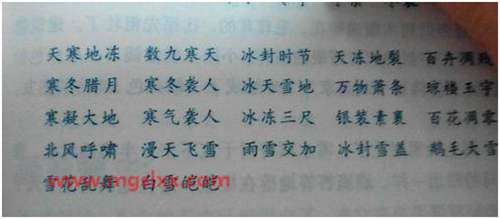 天寒地冻 数九寒天 冰封时节 天冻地裂 百卉凋残
寒冬腊月 寒冬袭人 冰天雪地 万物萧条 琼楼玉宇
寒凝大地 寒气袭人 冰冻三尺 银装素裹 百花凋零
北风呼啸 漫天飞雪 雨雪交加 冰封雪盖 鹅毛大雪
雪花乱舞 白雪皑皑